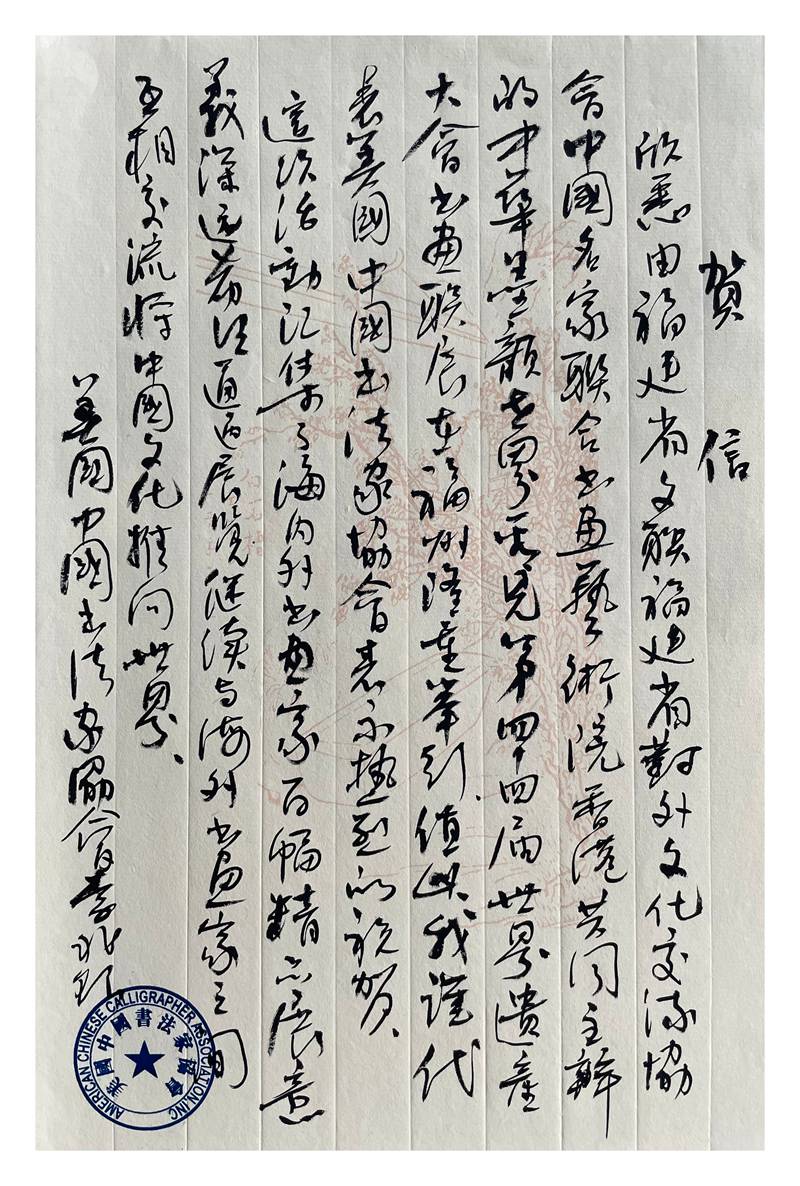 賀信
欣悉由福建省文联福建省對外文化交流協
會中國名家聯合书画藝術院香港共同主辦
的才華墨韻世界共覽第四十四届世界遺產
大會书画联展在福州隆重举行、值此我謹代
表美國中國书法家協會表示热烈的祝贺、
這次活動汇集了海内外书画家百幅精品展意
義深远希望通过展览继续与海外书画家之间
互相交流將中國文化推向世界、
美國中國书法家協會李兆銀
AMERICAN CHINESE CALLIGRAPHER ASSOCIATION,INC
美國中國書法家協會